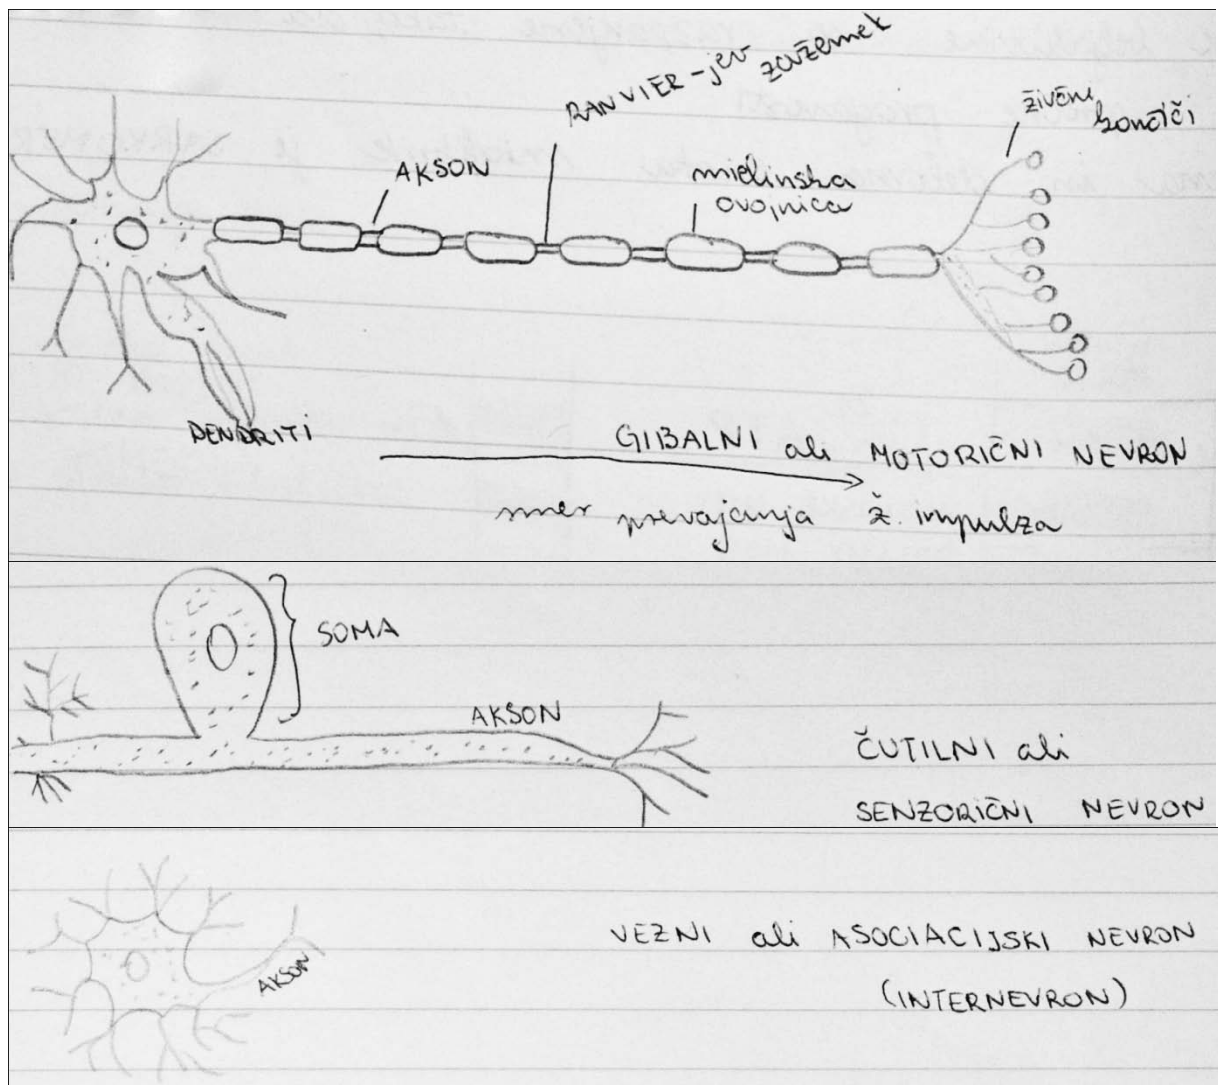 RANVIER-jev zažemek
živčni
končiči
AKSON
mielinska
ovojnica
DENDRITI
GIBALNI ali MOTORIČNI NEVRON
smer prevajanja ž. impulza
SOMA
AKSON
ČUTILNI ali
SENZORIČNI NEVRON
VEZNI ali ASOCIACIJSKI NEVRON
AKSON
(INTERNEVRON)